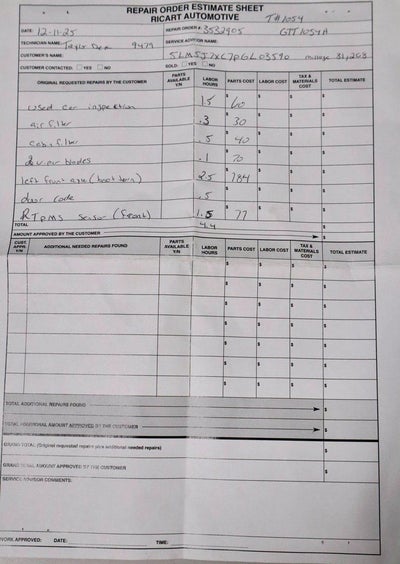 REPAIR ORDER ESTIMATE SHEET
RICART AUTOMOTIVE T#1054
DATE: 12-11-25 REPAIR ORDER #: 3532905 GTT1054A
TECHNICIAN NAME: Taylor 9479 SERVICE ADVISOR NAME:
CUSTOMER'S NAME: 5LM5J7XC7PGL03590 mileage 31,263
CUSTOMER CONTACTED: YES NO SOLD: YES NO
ORIGINAL REQUESTED REPAIRS BY THE CUSTOMER PARTS AVAILABLE Y/N LABOR HOURS PARTS COST LABOR COST TAX & MATERIALS COST TOTAL ESTIMATE
used car inspection 1.5 $ 60 $ $ $
air filter .3 $ 30 $ $ $
cabin filter .5 $ 40 $ $ $
2 wiper blades .1 $ 70 $ $ $
left front axle (boot torn) 2.5 $ 784 $ $ $
door code .5 $ $ $ $
R TPMS sensor (front) 1.5 $ 77 $ $ $
TOTAL 4.4
AMOUNT APPROVED BY THE CUSTOMER $
CUST. APPR. Y/N ADDITIONAL NEEDED REPAIRS FOUND PARTS AVAILABLE Y/N LABOR HOURS PARTS COST LABOR COST TAX & MATERIALS COST TOTAL ESTIMATE
$ $ $ $
$ $ $ $
$ $ $ $
$ $ $ $
$ $ $ $
$ $ $ $
$ $ $ $
TOTAL ADDITIONAL REPAIRS FOUND $
TOTAL ADDITIONAL AMOUNT APPROVED BY THE CUSTOMER $
GRAND TOTAL (Original requested repairs plus additional needed repairs) $
GRAND TOTAL AMOUNT APPROVED BY THE CUSTOMER $
SERVICE ADVISOR COMMENTS:
WORK APPROVED: DATE: TIME: